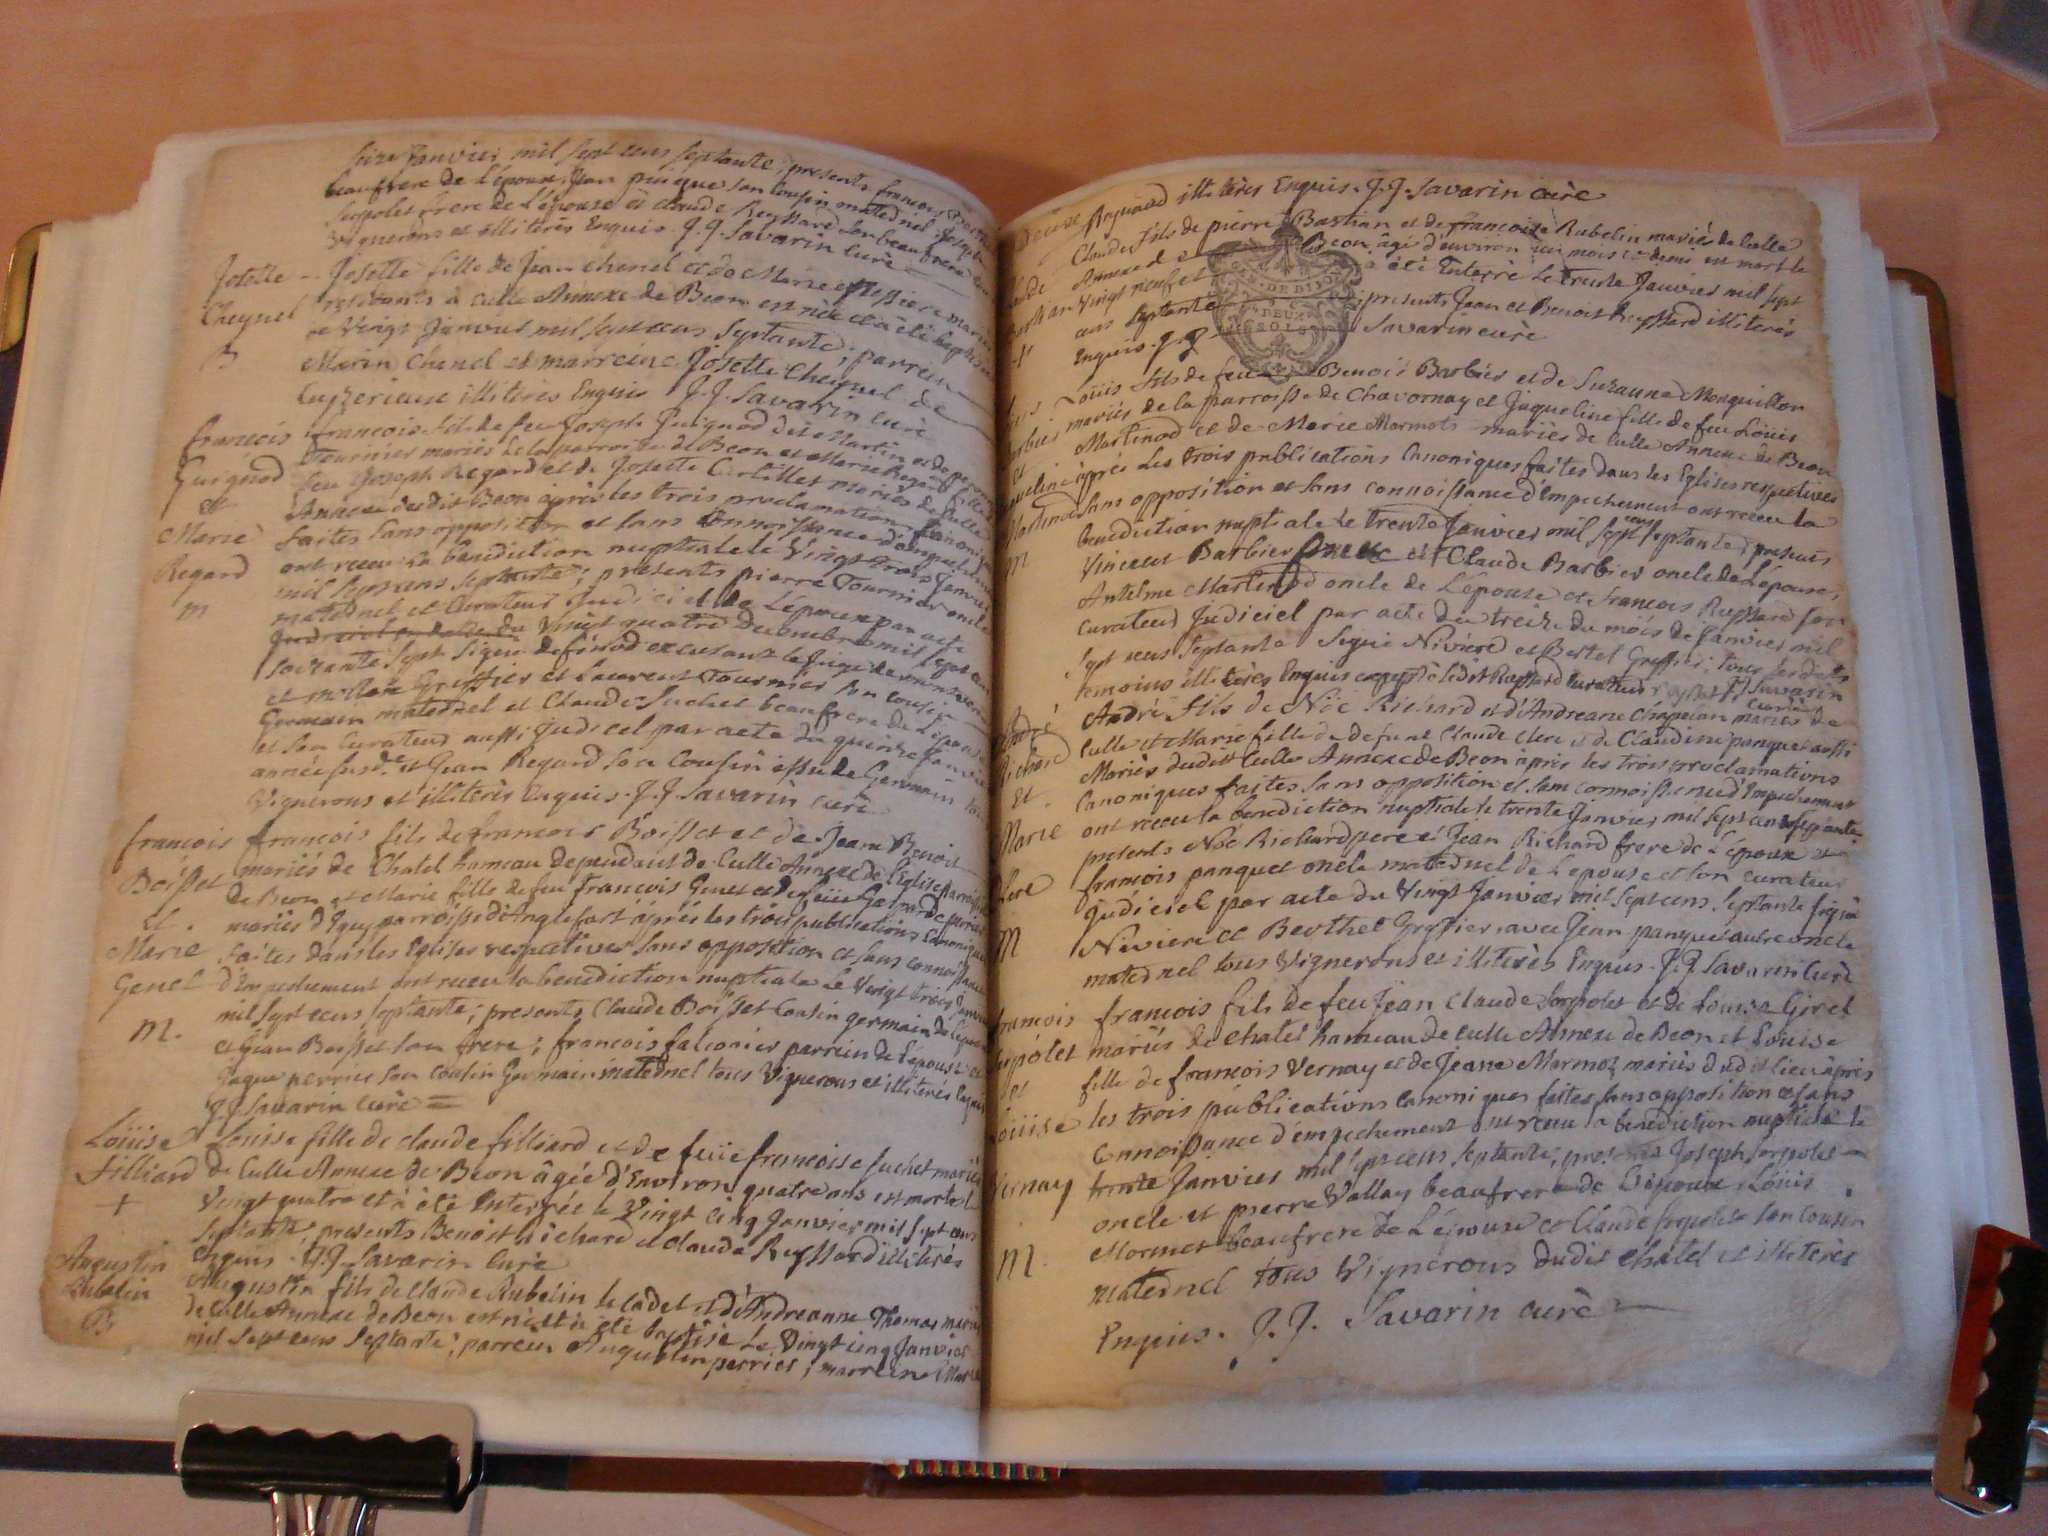 seize Janvier mil sept cens septante, presents francois
beaufrere de L'epoux, Jean puique son Cousin maternel, Joseph
Serpolet frere de L'epouse et claude Reyssard son beaufrere
Vignerons et illiterès Enquis. J. J. Savarin Curè
Josette Josette fille de Jean chenel et de Marie
Cheynel residants à culle Annexe de Beon est nèe et à étè baptisée
B ce Vingt Janvier mil sept cens septante; parrein
Merin Chenel et marreine Josette Cheynel de
Cuyzerieux illiterès Enquis J. J. Savarin curè
francois francois fils de feu Joseph Guignod dit Martin et de
Guignod Tournier mariès de la parroisse de Beon et Marie Regard fille de
et feu Joseph Regard et de Josette Curtillet mariès de Culle
Annexe dudit Beon àprès les trois proclamations Canoniques
Marie faites sans opposition et sans connoissance d'empechement
Regard ont receu la benediction nuptiale le Vingt trois Janvier
m mil sept cens septante; presents pierre Tournier oncle
maternel et Curateur Judiciel de L'epoux par acte
du Vingt quatre Decembre mil sept cens
soixante sept signè
et Greffier et Laurent Tournier son cousin
Germain maternel et Claude Suchet beaufrere de L'epouse
et son Curateur aussi Judiciel par acte du quinze Janvier
annèe susd.e et Jean Regard son Cousin issu de Germain
Vignerons et illiterès Enquis. J. J. Savarin curè
francois francois fils de francois Boisset et de Jean Benoit
Boisset mariès de Chatel hameau dependant de Culle Annexe de l'Eglise
et. de Beon et Marie fille de feu francois Genet et de
mariès d'Iguy parroisse d'Anglefort àprès les trois publications Canoniques
Marie faites dans les Eglises respectives sans opposition et sans connoissance
Genet d'Empechement ont receu la benediction nuptiale le Vingt trois Janvier
m. mil sept cens septante; presents Claude Boisset Cousin germain de l'epoux
et Jean Boisset son frere; francois falconier parrein de L'epouse et
Jaque perrier son Cousin Germain maternel tous Vignerons et illiterès Enquis
J. J. Savarin Curè
Loüise Louise fille de claude filliard et de feüe francoise Suchet mariès
Filliard de Culle Annexe de Beon âgèe d'Environ quatre ans est morte le
+ Vingt quatre et à étè Enterrèe le Vingt cinq Janvier mil sept cens
septante, presents Benoit Richard et claude Reyssard illiterès
Enquis. J. J. Savarin Curè
Augustin Augustin fils de claude Rubelin le cadet et d'Andreanne Thomas mariès
Rubelin de Culle Annexe de Beon est nè et à étè baptisè le Vingt cinq Janvier
B mil sept cens septante; parrein Augustin perrier; marreine Marie
Reynaud illiterès Enquis. J. J. Savarin curè
Claude fils de pierre Bastian et de francoise Rubelin mariès de Culle
Annexe de Beon âgè d'environ six mois et demi est mort le
Vingt neuf et à étè Enterrè le trente Janvier mil sept
cens septante presents Jean et Benoit Reyssard illiterès
Enquis. J. J. Savarin curè
+
DE DIJON
DEUX
SOLS
Loüis fils de feu Benoit Barbier et de Suzanne Monquillon
mariès de la parroisse de Chavornay et Jaqueline fille de feu Loüis
et Martinod et de Marie Mormots mariès de Culle Annexe de Beon
àprès les trois publications Canoniques faites dans les Eglises respectives
Martinod sans opposition et sans connoissance d'Empechement ont receu la
benediction nuptiale le trente Janvier mil sept cens septante, presents
m Vincent Barbier et Claude Barbier oncle de L'epoux,
Antelme Martinod oncle de L'epouse et francois Reyssard son
curateur Judiciel par acte du treize du mois de Janvier mil
sept cens septante signè Nivière et Bertet Greffier; tous
temoins illiterès Enquis exceptè ledit Reyssard curateur J. J. Savarin
Curè
Andrè Andrè fils de Noè Richard et d'Andreane Chapelan mariès de
Richard Culle et Marie fille de defunt Claude Clerc et de Claudine panquet aussi
Mariès dudit Culle Annexe de Beon àprès les trois proclamations
et. Canoniques faites sans opposition et sans connoissance d'Empechement
Marie ont receu la benediction nuptiale le trente Janvier mil sept cens septante
presents Noè Richard pere et Jean Richard frere de L'epoux et
Clerc francois panquet oncle maternel de L'epouse et son curateur
Judiciel par acte du Vingt Janvier mil sept cens septante signè
m Niviere et Berthet Greffier, avec Jean panquet autre oncle
maternel tous Vignerons et illiterès Enquis. J. J. Savarin Curè
francois francois fils de feu Jean Claude Serpolet et de Louise Giret
Serpolet mariès de Chatel hameau de Culle Annexe de Beon et Loüise
et fille de francois Vernay et de Jeane Marmoz mariès dudit lieu àprès
Loüise les trois publications Canoniques faites sans opposition et sans
Connoissance d'empechement ont receu la benediction nuptiale le
Vernay trente Janvier mil sept cens septante, presents Joseph Serpolet
oncle et pierre Vallay beaufrere de L'epoux, Loüis
m. Mormet beaufrere de L'epouse et Claude Serpolet son cousin
maternel tous Vignerons dudit Chatel et illiterès
Enquis. J. J. Savarin curè